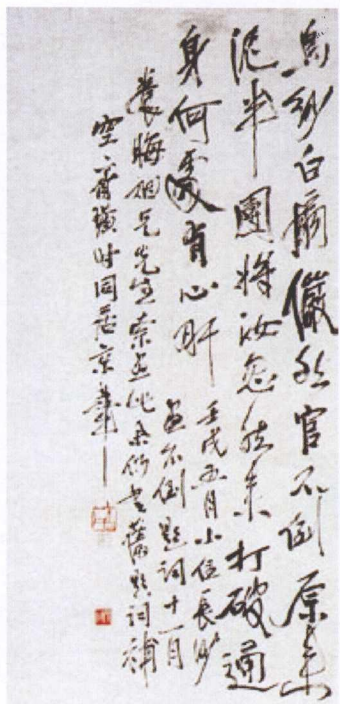 烏紗白扇儼然官不倒原來
泥半團將汝忽然來打破通
身何處有心肝壬戌五月小住長沙
畫不倒題詞十一月
養晦仁兄先生索畫此余仍書舊題詞補
空齊璜時同居京華